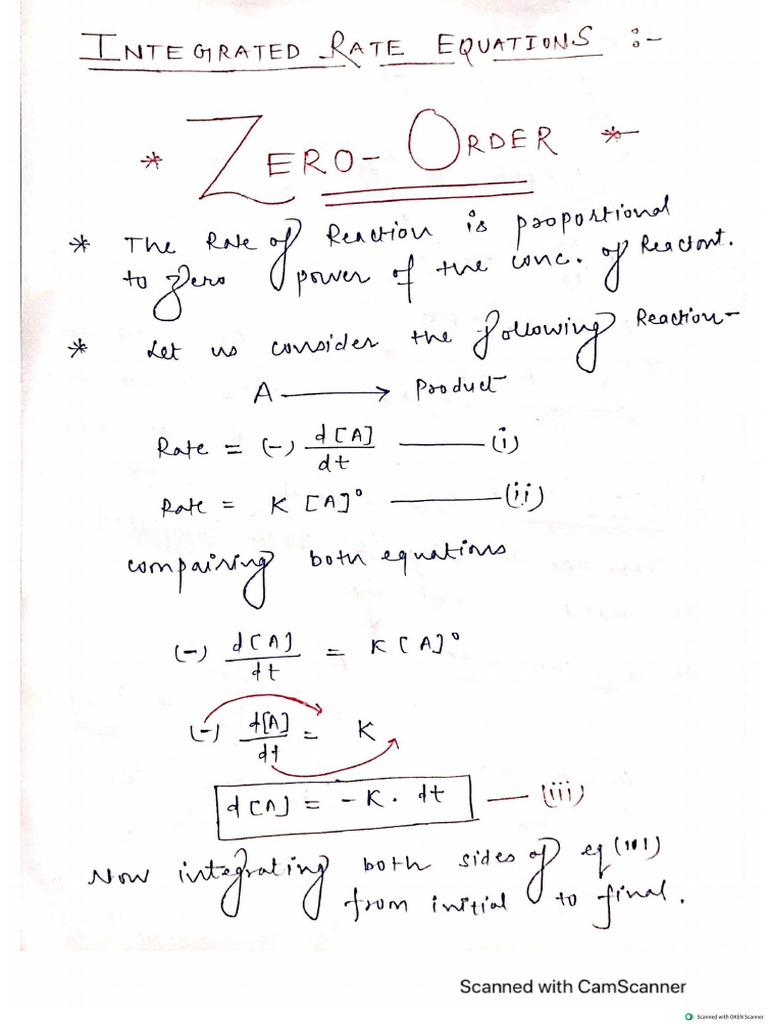 INTEGRATED RATE EQUATIONS :-
* ZERO- ORDER *
* The Rate of Reaction is proportional
to zero power of the conc. of Reactant.
* Let us consider the following Reaction-
A ⟶ Product
Rate = (-) d[A]/dt —— (i)
Rate = K [A]° —— (ii)
compairing both equations
(-) d[A]/dt = K[A]°
(-) d[A]/dt = K
d[A] = -K. dt —— (iii)
Now integrating both sides of eq (iii)
from initial to final.
Scanned with CamScanner
Scanned with OKEN Scanner